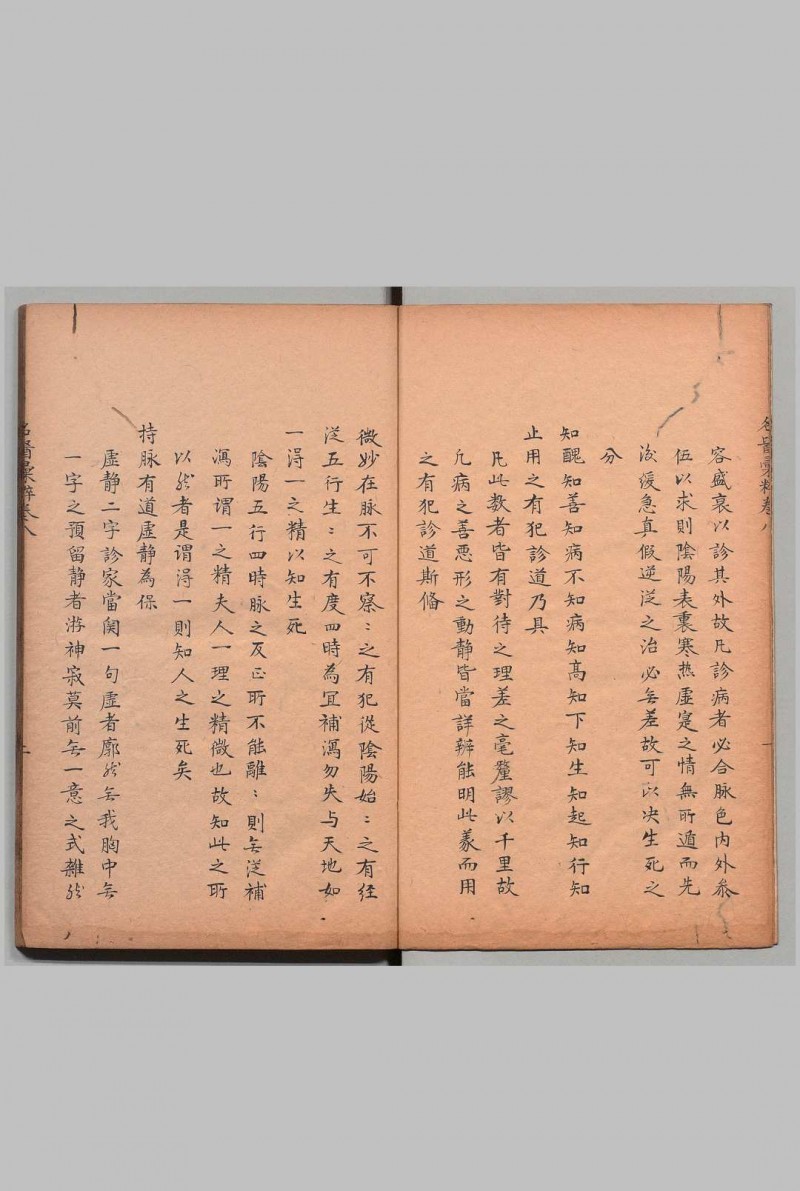 名醫彙粹卷八
容盛衰以診其外故凡診病者必合脉色內外叅
伍以求則陰陽表裏寒热虛寔之情無所遁而先
後緩急真假逆従之治必无差故可以决生死之
分
知醜知善知病不知病知髙知下知生知起知行知
止用之有犯診道乃具
凡此数者皆有對待之理差之毫釐謬以千里故
凢病之善悪形之動静皆當詳辨能明此義而用
之有犯診道斯俻
微妙在脉不可不察〻之有犯從陰陽始〻之有経
従五行生〻之有度四時為宜補瀉勿失与天地如
一淂一之精以知生死
陰陽五行四時脉之及正所不能離〻則无従補
瀉所谓一之精夫人一理之精微也故知此之所
以然者是谓淂一則知人之生死矣
持脉有道虛静為保
虛静二字診家當関一句虛者廓然无我胸中无
一字之預留静者游神寂莫前无一意之式雜然
名醫彙粹卷八